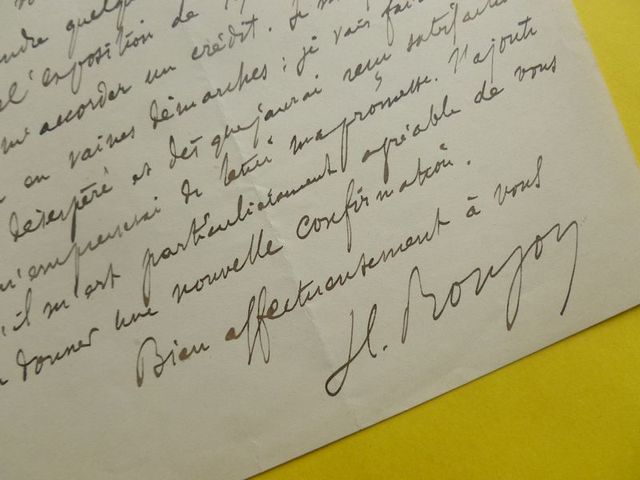 quelque
l'exposition de
m'accorder un crédit. Je
en vaines démarches : je vais fai
désespéré et dès que j'aurai reçu satisfaction
m'empresserai de tenir ma promesse. J'ajoute
qu'il m'est particulièrement agréable de vous
donner une nouvelle confirmation.
Bien affectueusement à vous
H. Roujon